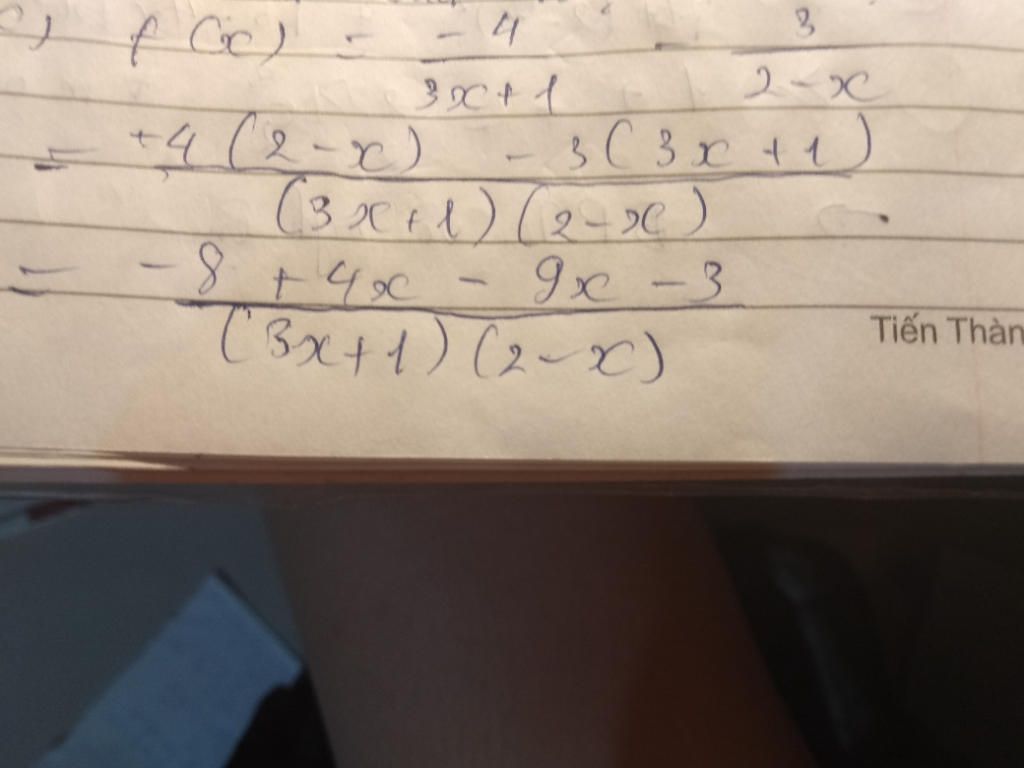 c) f(x) = -4/(3x+1) - 3/(2-x)
= +4(2-x) - 3(3x+1)/(3x+1)(2-x)
= -8 + 4x - 9x - 3/(3x+1)(2-x)
Tiến Thàn